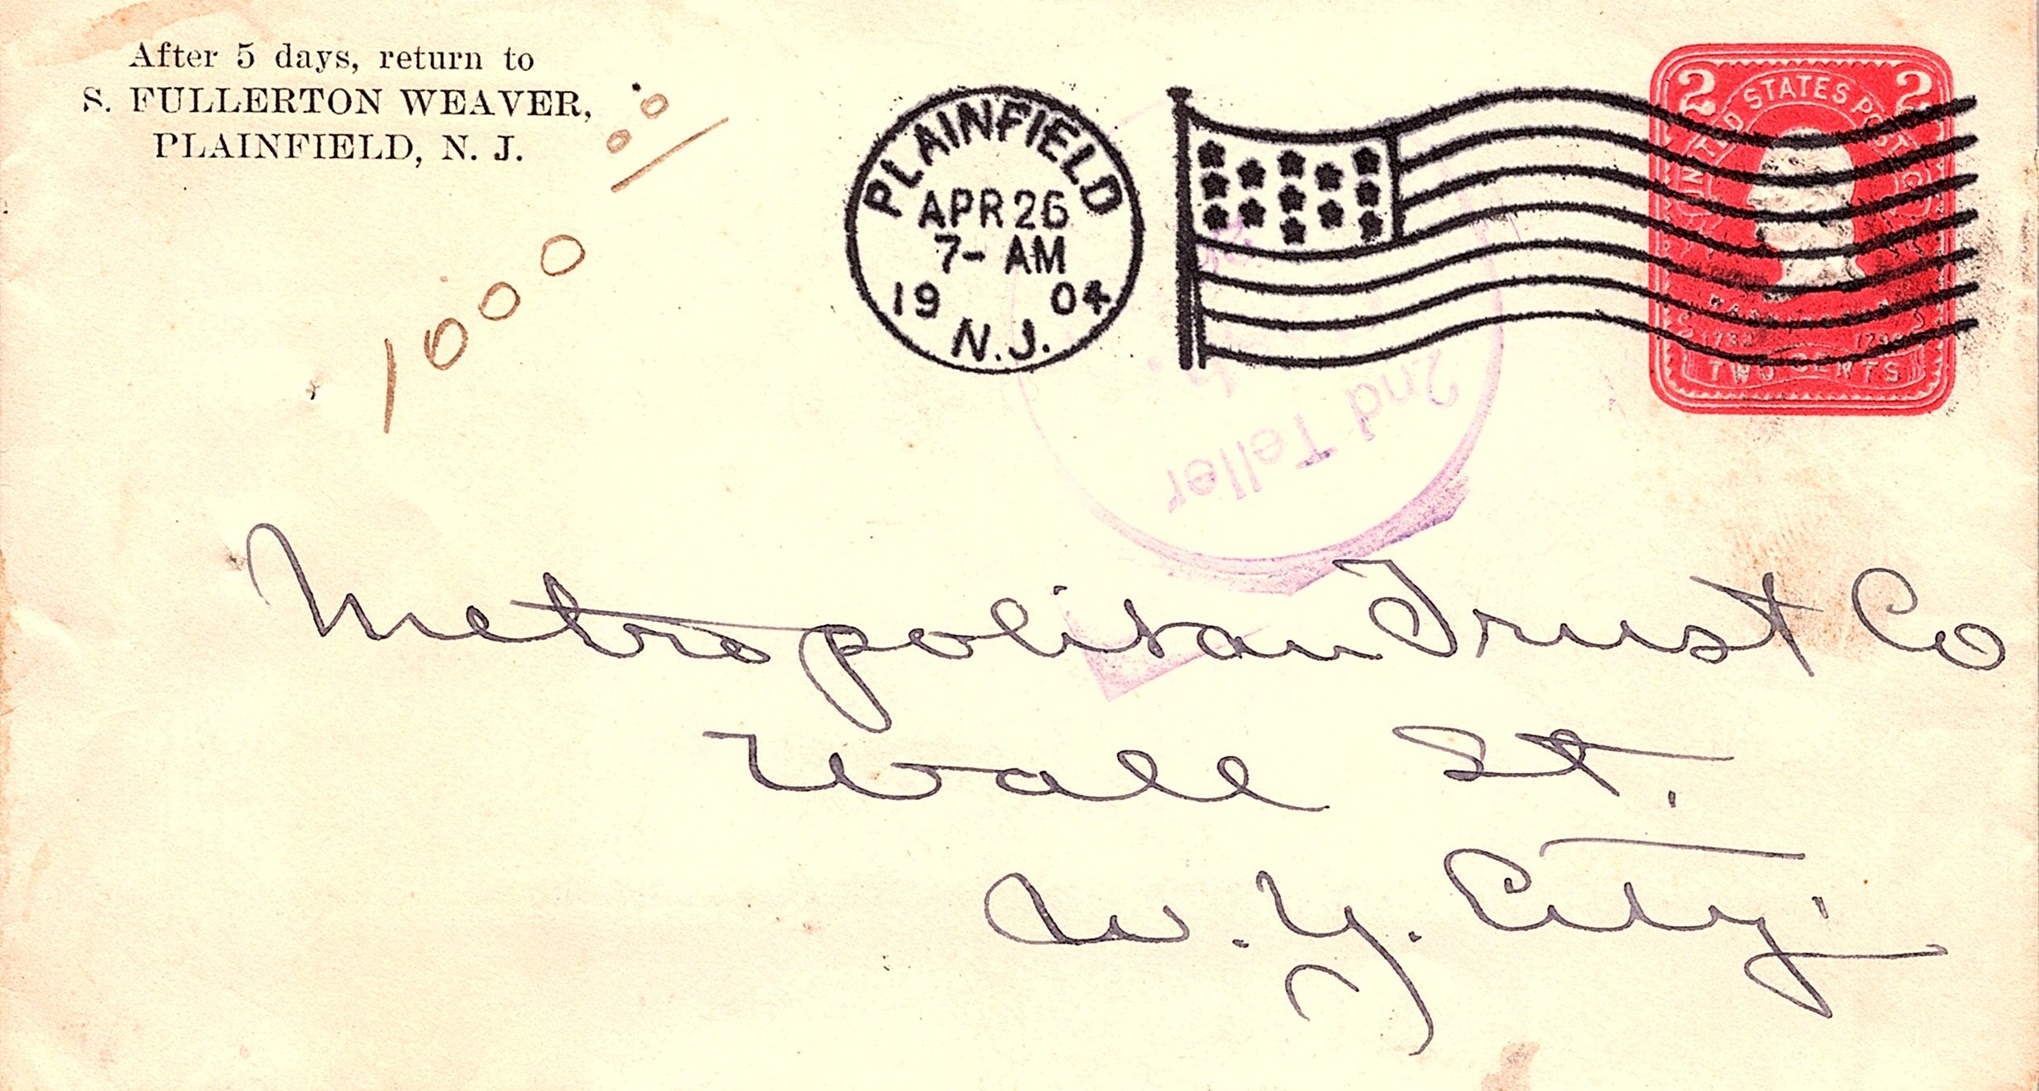 After 5 days, return to
S. FULLERTON WEAVER,
PLAINFIELD, N. J.
1000 00/
PLAINFIELD
APR 26
7- AM
19 04
N.J.
2 2
UNITED STATES POSTAGE
WASHINGTON
1732 1799
TWO CENTS
2nd Teller
Metropolitan Trust Co
Wall St.
N. Y. City.